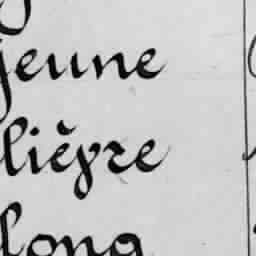 jeune
lièvre
long